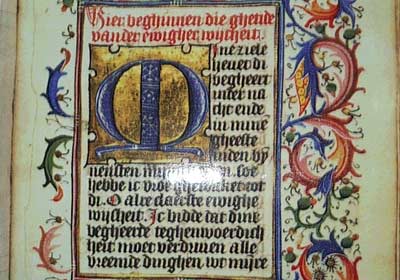 Hier beghinnen die ghetide
vander ewigher wijsheit.
M ine ziele
heuet di
begheert
inter na
cht ende
in mine
gheeste
inden bỹ
nensten so
hebbe ic vroe tot
di. O alre claerste ewighe
wijsheit. Ic bidde dat dine
begheerde teghenwoerdich
heit moet verdriuen alle
vreemde dinghen wt mijre